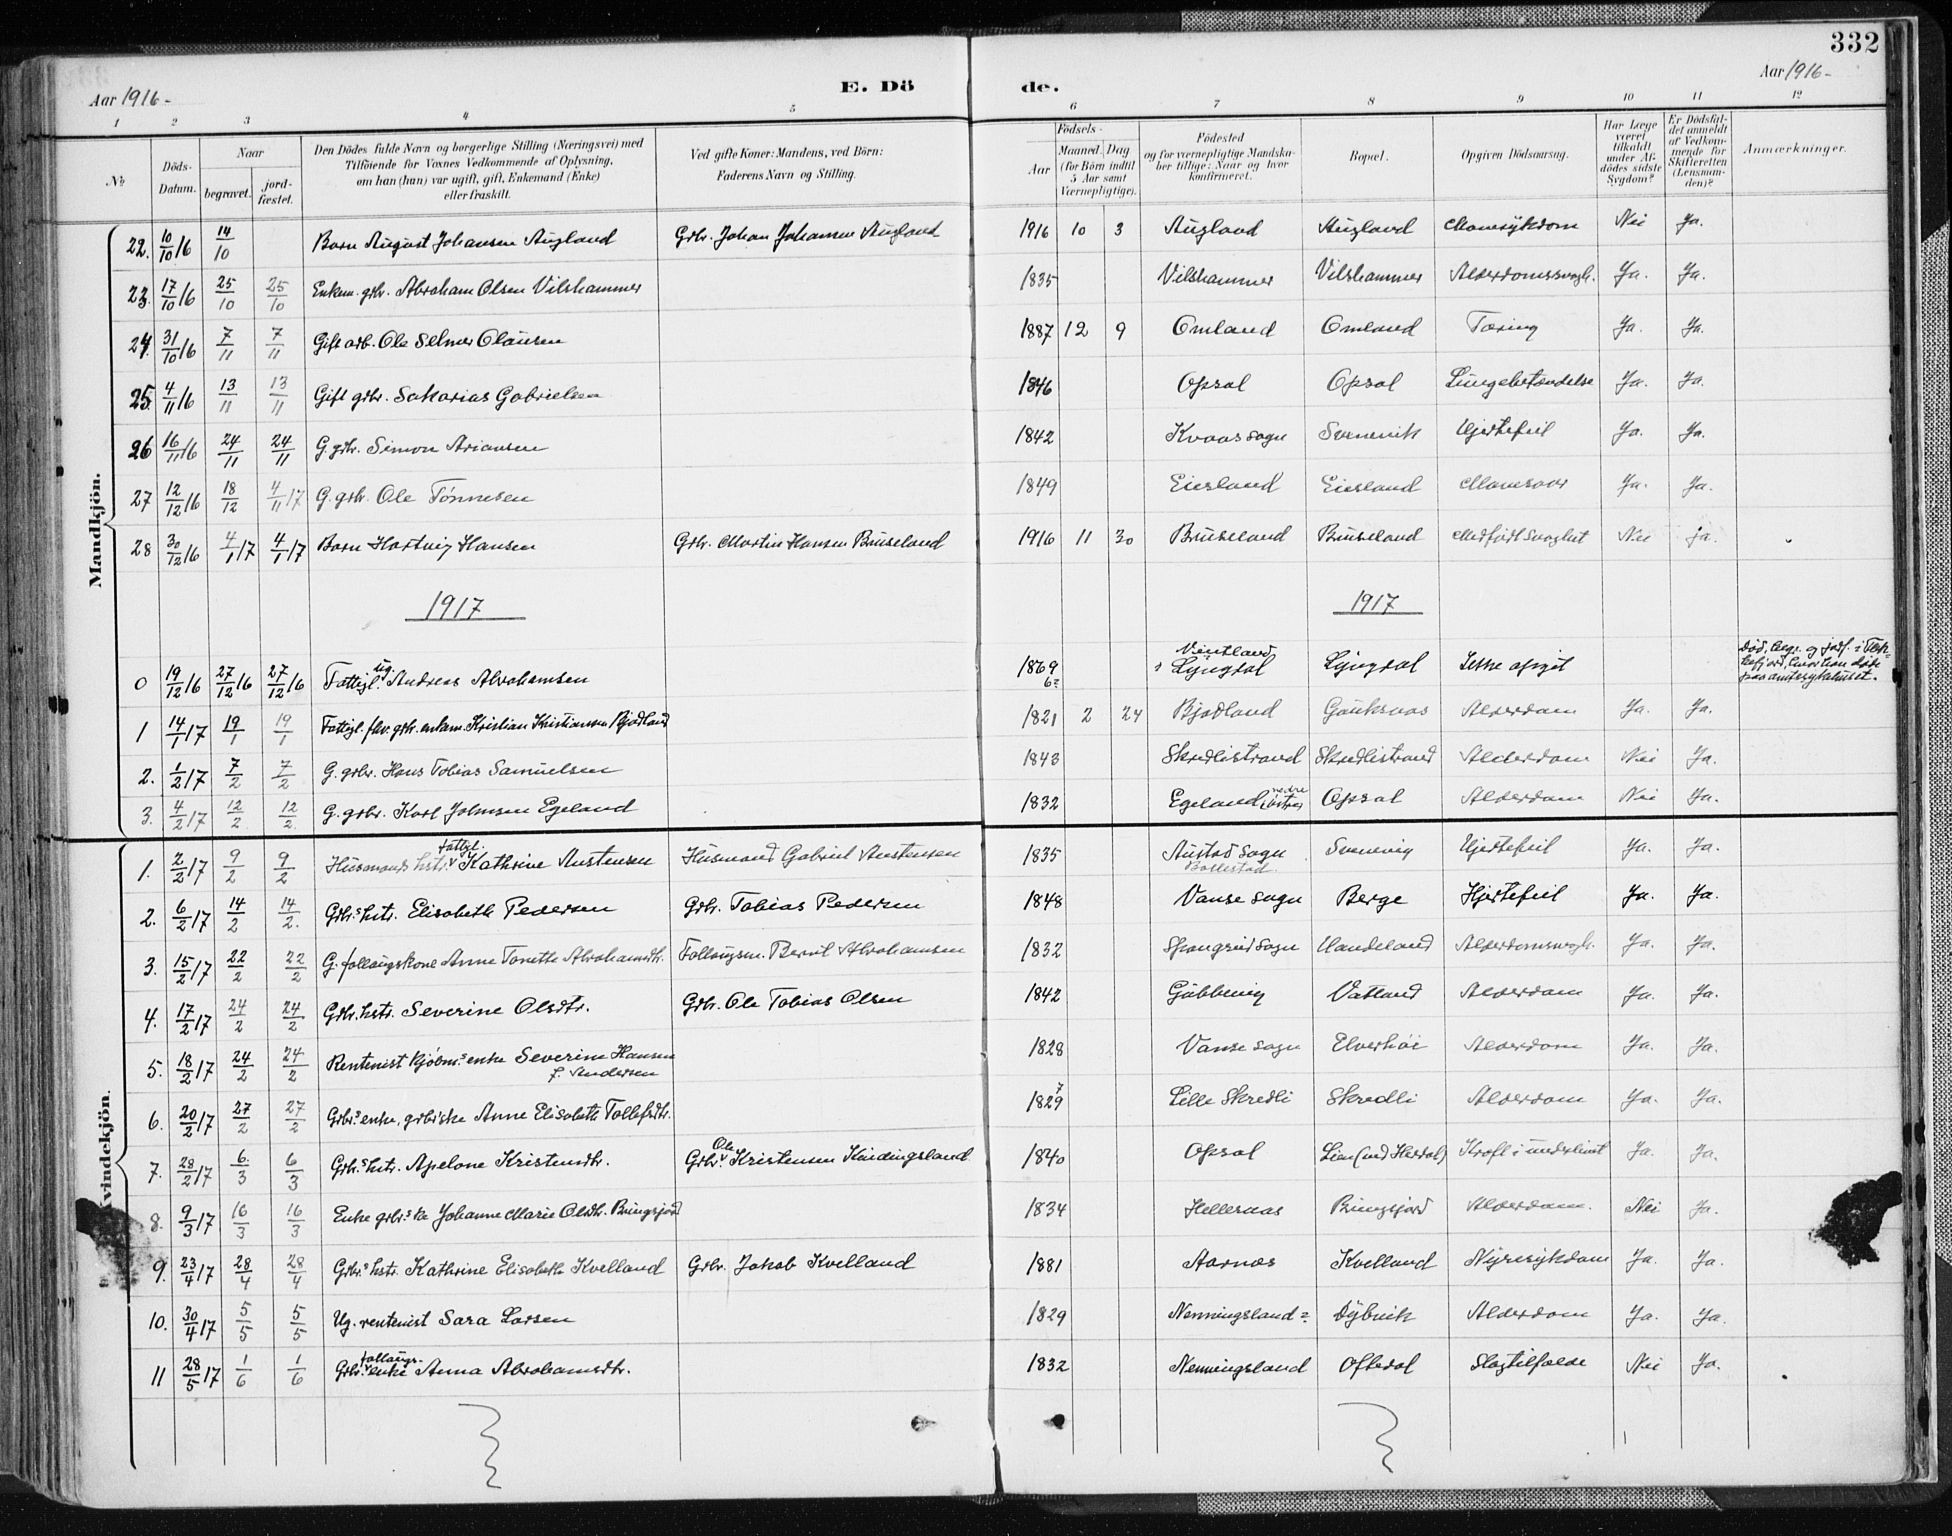 332
Aar 1916 -
E. Dö de.
Aar 1916 -
1 2 3 4 5 6 7 8 9 10 11 12
No.
Döds-Datum.
Naar
begravet.
jord-fæstet.
Den Dödes fulde Navn og borgerlige Stilling (Næringsvei) med
Tilföiende for Voxnes Vedkommende af Oplysning,
om han (hun) var ugift, gift, Enkemand (Enke)
eller fraskilt.
Ved gifte Koner: Mandens, ved Börn:
Faderens Navn og Stilling.
Födsels-
Aar
Maaned. Dag
(for Börn indtil
5 Aar samt
Værnepligtige).
Födested
og for værnepligtige Mandska-
ber tillige: Naar og hvor
konfirmeret.
Bopæl.
Opgiven Dödsaarsag.
Har Læge
været
tilkaldt
under Af-
dödes sidste
Sygdom?
Er Dödsfal-
det anmeldt
af Vedkom-
mende for
Skifteretten
(Lensman-
den)?
Anmærkninger.
Mandkjön.
22. 10/10 16 14/10 Barn August Johansen Augland Grbr. Johan Johansen Augland 1916 10 3 Augland Augland Mavesykdom Nei Ja.
23. 17/10 16 25/10 25/10 Enkem. grbr. Abraham Olsen Vilshammer 1835 Vilshammer Vilshammer Alderdomssvagh. Ja. Ja.
24. 31/10 16 7/11 7/11 Gift arb. Ole Selmer Olausen 1887 12 9 Omland Omland Tæring Ja. Ja.
25. 4/11 16 13/11 13/11 Gift grbr. Sakarias Gabrielsen 1846 Opsal Opsal Lungebetændelse Ja. Ja.
26 16/11 16 24/11 24/11 G. grbr. Simon Ariansen 1842 Kvaas sogn Svenevik Hjertefeil Ja. Ja.
27 12/12 16 18/12 4/11 17 G. grbr. Ole Tønnesen 1849 Eiesland Eiesland Mavesaar Ja. Ja.
28 30/12 16 4/1 17 4/1 17 Barn Hartvig Hansen Grbr. Martin Hansen Bruseland 1916 11 30 Bruseland Bruseland Medfødt svaghet Nei ja.
1917 1917
0 19/12 16 27/12 16 27/12 16 Fattigl. ug. Andreas Abrahamsen 1869 6? Vintland i Lyngdal Lyngdal Ikke opgit Død, begr. og jodf. i Flek-
kefjord, hvor han døde
paa amtsykehuset.
1 14/1 17 19/1 19/1 Fattigl. fhv. grbr. enkem. Kristian Kristiansen Bjodland 1821 2 24 Bjodland Gauksaas Alderdom Ja. Ja.
2. 1/2 17 7/2 7/2 G. grbr. Hans Tobias Samuelsen 1843 Skredlistrand Skredlistrand Alderdom Nei Ja.
3. 4/2 17 12/2 12/2 G. grbr. Karl Johnsen Egeland 1832 Egeland nedre østre Opsal Alderdom Nei Ja.
Kvindekjön.
1. 2/2 17 9/2 9/2 Husmands hstr. fattigl. Kathrine Austensen Husmand Gabriel Austensen 1835 Austad sogn Bollestad Svenevig Hjertefeil Ja. Ja.
2. 6/2 17 14/2 14/2. Grbr.s hstr. Elisabeth Pedersen Grbr. Tobias Pedersen 1848 Vanse sogn Berge Hjertefeil Ja. Ja.
3. 15/2 17 22/2 22/2 G. follaugskone Anne Tonette Abrahamsdtr. Follaugsm. Bernt Abrahamsen 1832 Spangreid sogn Haudeland Alderdomssvagh. Ja. Ja.
4. 17/2 17 24/2 24/2 Grbr. hstr. Severine Olsdtr. Grbr. Ole Tobias Olsen 1842 Gübbevig Vatland Alderdom Ja. Ja.
5. 18/2 17 24/2 24/2 Rentenist kjøbm.s enke Severine Hansen
f. Andersen 1828 Vanse sogn Elverhöi Alderdom Ja. Ja.
6. 20/2 17 27/2 27/2 Grbr.s enke, grbr'ske Anne Elisabeth Tollefsdtr. 1829 7 Lille Skredli Skredli Alderdom Ja. Ja.
7. 28/2 17 6/3 6/3 Grbr.s hstr. Apelone Kristensdtr. Grbr. Ole Kristensen Hindingsland 1840 Opsal Lien (und Herdal) Kræft i underlivet Ja. Ja.
8. 9/3 17 16/3 16/3 Enke grbr.ske Johanne Marie Olsdtr. Bringsjord 1834 Hellernaas Bringsjord Alderdom. Nei Ja.
9. 23/4 17 28/4 28/4 Grbr.s hstr. Kathrine Elisabeth Kvelland Grbr. Jakob Kvelland 1881 Aarnes Kvelland Nyresykdom Ja. Ja.
10. 30/4 17 5/5 5/5 Ug. rentenist Sara Larsen 1829 Nenningsland? Dybvik Alderdom Ja. Ja.
11 28/5 17 1/6 1/6 Grbr. follaugs- enke Anna Abrahamsdtr. 1832 Nenningsland Oftedal Slagtilfælde Nei Ja.